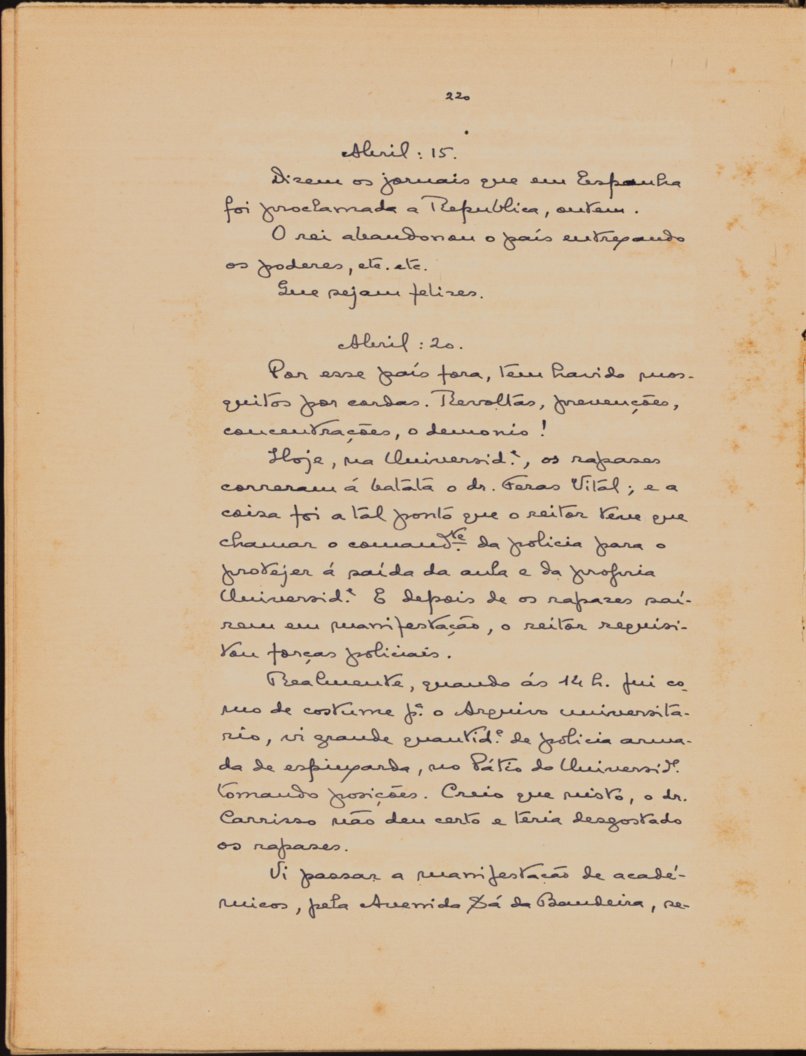 220
Abril: 15.
Dizem os jornais que em Espanha
foi proclamada a Republica, ontem.
O rei abandonou o país entregando
os poderes, etc. etc.
Que sejam felizes.
Abril: 20.
Por esse país fora, tem havido mos-
quitos por cordas. Revoltas, prevenções,
concentrações, o demonio!
Hoje, na Universid.e, os rapazes
correram á batata o dr. Fezas Vital; e a
coisa foi a tal ponto que o reitor teve que
chamar o comand.te da policia para o
protejer á saída da aula e da propria
Universid.e E depois de os rapazes saí-
rem em manifestação, o reitor requisi-
tou forças policiais.
Realmente, quando ás 14 h. fui co-
mo de costume p.a o Arquivo universitá-
rio, vi grande quantid.e de policia arma-
da de espingarda, no Pátio da Universid.e
tomando posições. Creio que nisto, o dr.
Carrisso não deu certo e teria desgostado
os rapazes.
Vi passar a manifestação de acadé-
micos, pela Avenida Sá da Bandeira, se-